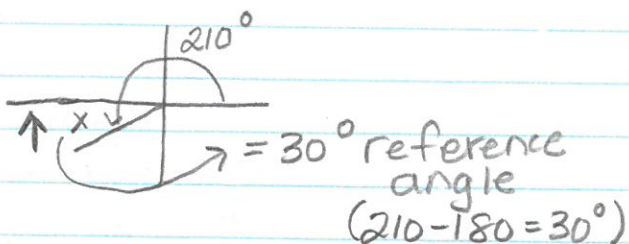 210°
x
= 30° reference
angle
(210-180=30°)